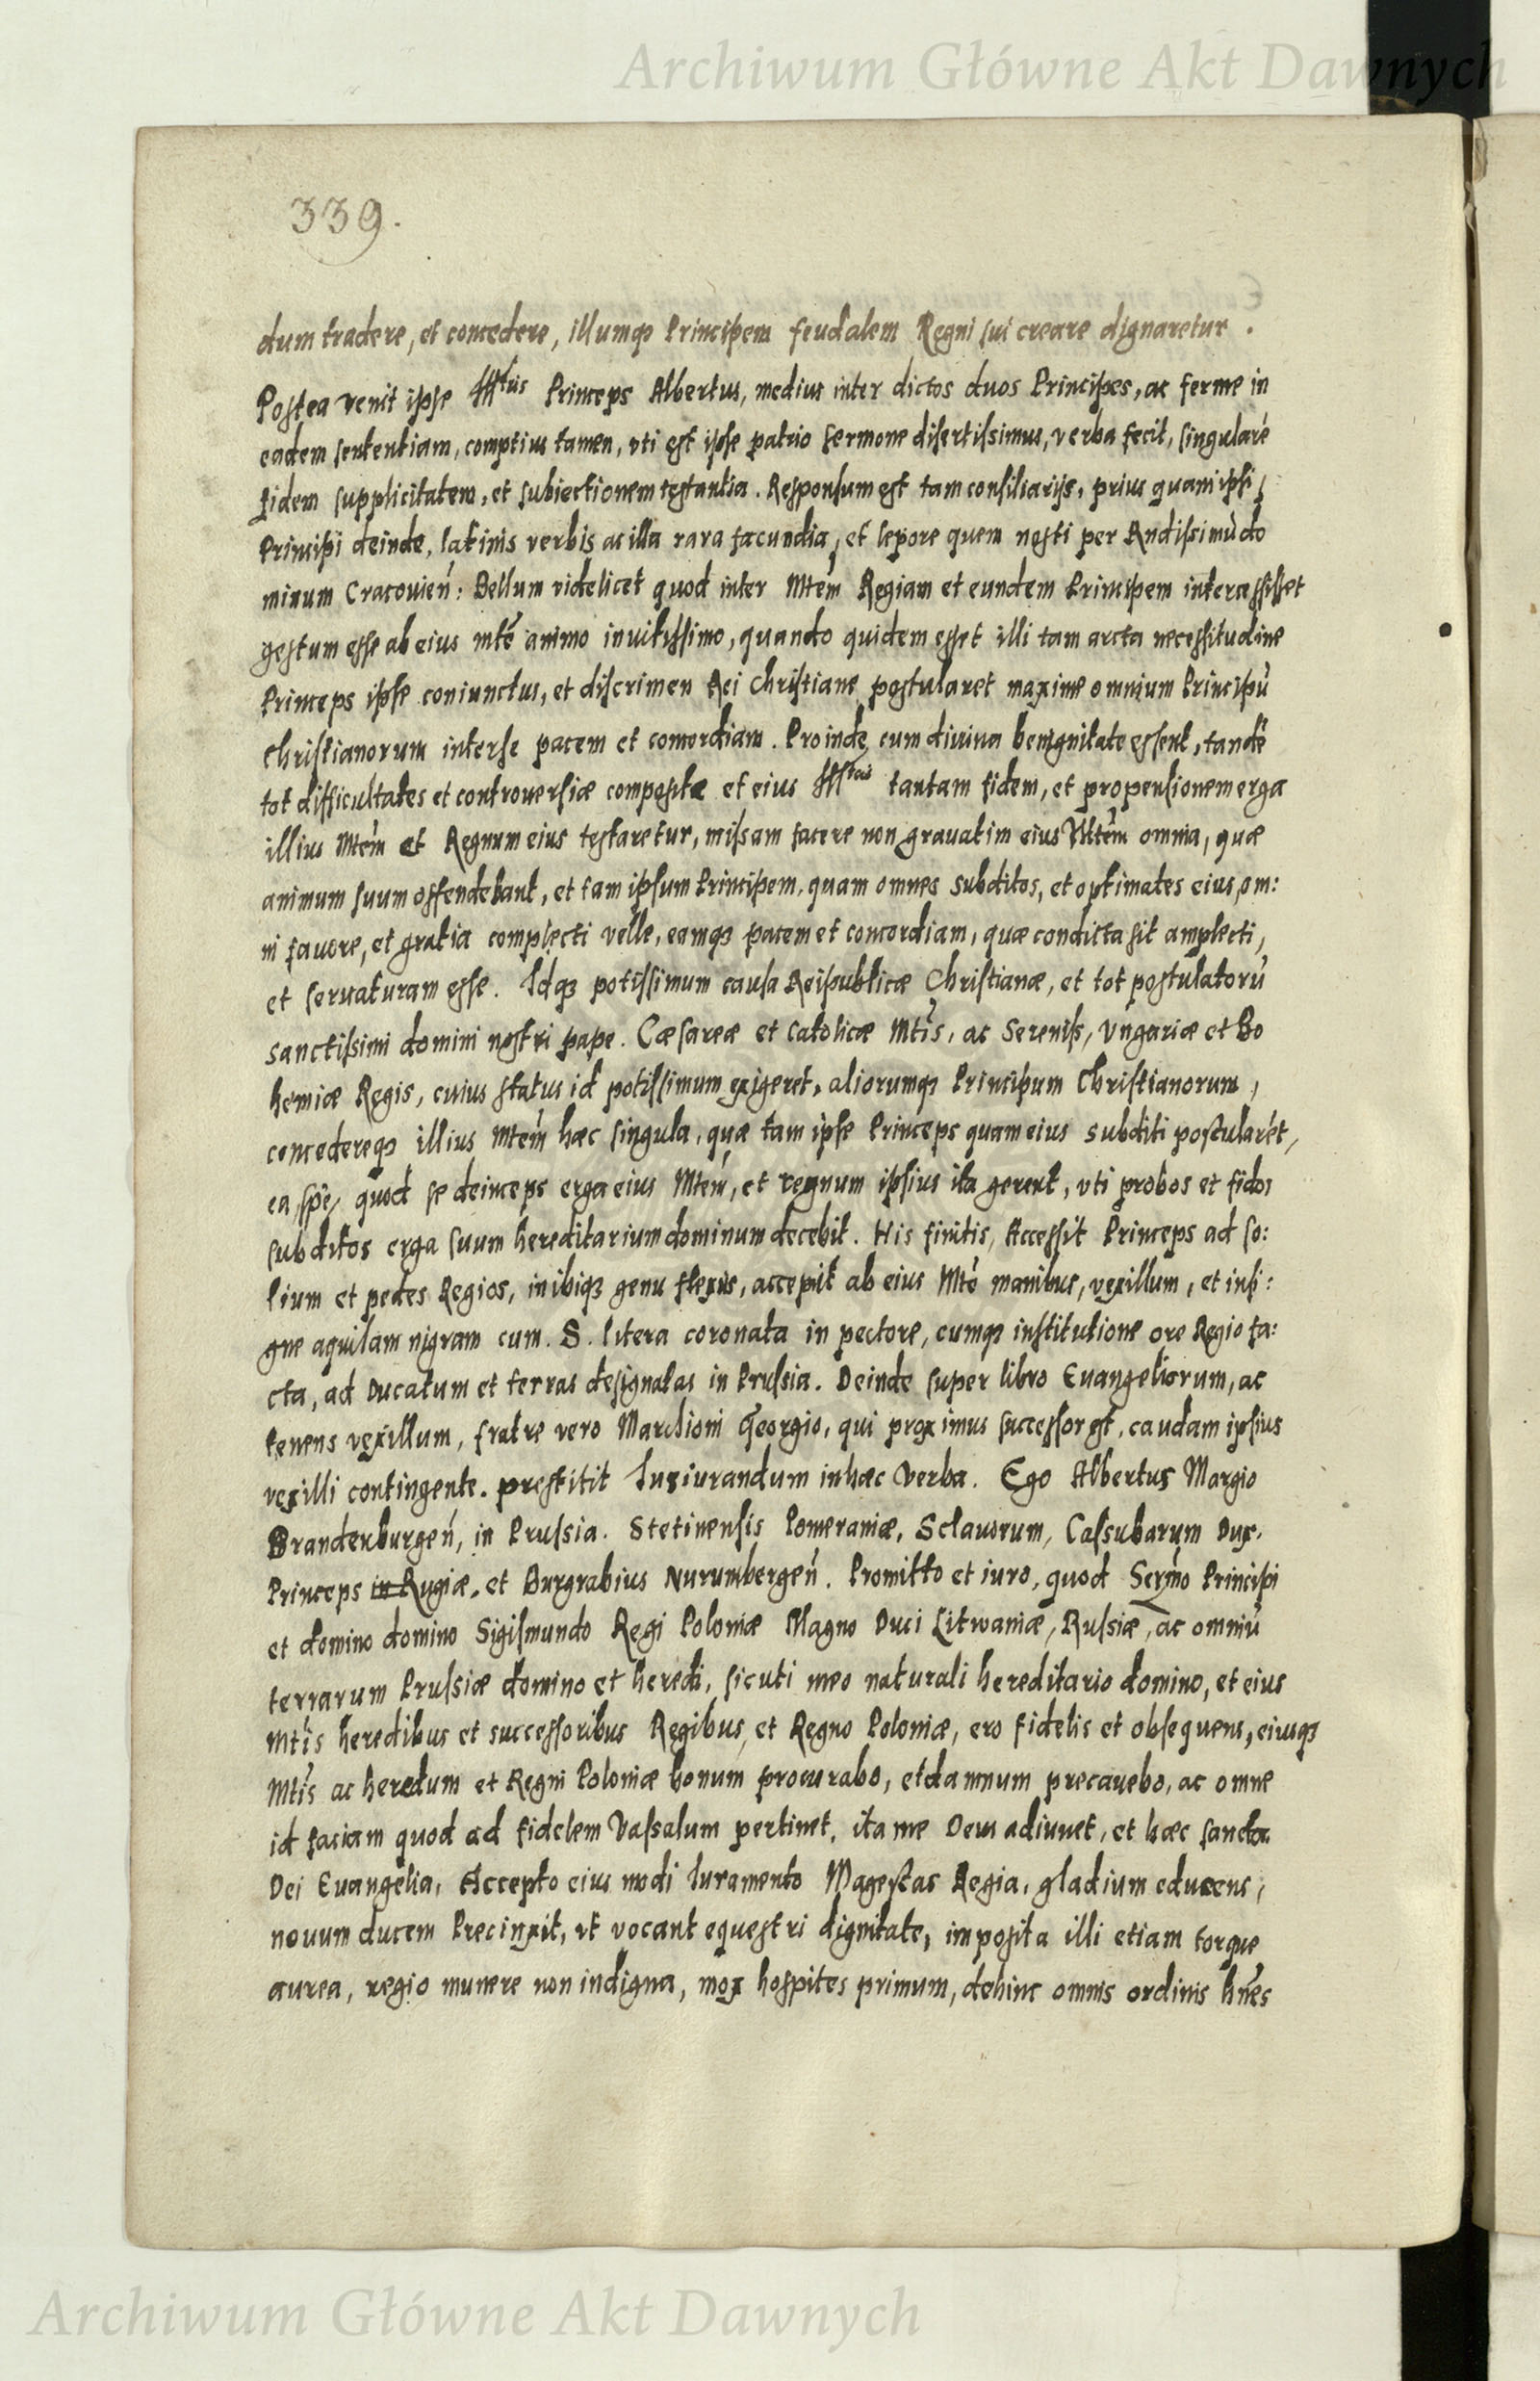 Archiwum Główne Akt Dawnych
339.
dum tradere, et concedere, illumq3 Principem feudalem Regni sui creare dignaretur.
Postea venit ipse Illtris Princeps Albertus, medius inter dictos duos Principes, ac ferme in
eadem sententiam, comptius tamen, vti est ipse patrio sermone disertissimus, verba fecit, singularē
fidem supplicitatem, et subiectionem testantia. Responsum est tam consiliarijs, prius quam ipsi,
Principi deinde, latinis verbis ac illa rara facundia, et lepore quem nosti per Rndissimū do
minum Cracouien̄: Bellum videlicet quod inter Mtēm Regiam et eundem Principem intercessisset
gestum esse ab eius mtē animo inuitissimo, quando quidem esset illi tam arcta necessitudine
Princeps ipse coniunctus, et discrimen Rei Christiane postularet maxime omnium Principū
Christianorum inter se pacem et concordiam. Proinde cum diuina benignitate essent, tandē
tot difficultates et controuersiæ compositæ et eius Illtris tantam fidem, et propensionem erga
illius Mtēm et Regnum eius testaretur, missam facere non grauatim eius Mtēm omnia, quæ
animum suum offendebant, et tam ipsum Principem, quam omnes subditos, et optimates eius, om:
ni fauore, et gratia complecti velle, eamq3 pacem et concordiam, quæ condicta sit amplecti,
et seruaturam esse. Idq3 potissimum causa Reipublicæ Christianæ, et tot postulatorū
sanctissimi domini nostri pape. Cæsareæ et catolicæ Mtīs, ac Sereniss, Vngariæ et Bo
hemiæ Regis, cuius status id potissimum exigeret, aliorumq3 Principum Christianorum,
concedereq3 illius Mtēm hæc singula, quæ tam ipse Princeps quam eius subditi postularēt,
ea spē, quod se deinceps erga eius Mtēm, et regnum ipsius ita gerent, vti probos et fidos
subditos erga suum hereditarium dominum decebit. His finitis, Accessit Princeps ad so:
lium et pedes Regios, in ibiq3 genu flexus, accepit ab eius Mtē manibus, vexillum, et insi:
gne aquilam nigram cum. S. litera coronata in pectore, cumq3 institutione ore Regio fa:
cta, ad Ducatum et terras designatas in Prussia. Deinde super libro Euangeliorum, ac
tenens vexillum, fratre vero Marchioni Georgio, qui proximus successor est, caudam ipsius
vexilli contingente. prestitit Iusiurandum in hæc verba. Ego Albertus Margio
Brandenburgen̄, in Prussia. Stetinensis Pomeraniæ, Sclauorum, Cassubarum Dux.
Princeps in Rugiæ, et Burgrabius Nurumbergen̄. Promitto et iuro, quod Serm̄o Principi
et domino domino Sigismundo Regi Poloniæ Magno Duci Litwaniæ, Russiæ, ac omniū
terrarum Prussiæ domino et heredi, sicuti meo naturali hereditario domino, et eius
Mtīs heredibus et successoribus Regibus, et Regno Poloniæ, ero fidelis et obsequens, eiusq3
Mtīs ac heredum et Regni Poloniæ bonum procurabo, et damnum precauebo, ac omne
id faciam quod ad fidelem Vassalum pertinet, ita me Deus adiuuet, et hæc sancta
Dei Euangelia. Accepto eius modi Iuramento Magestas Regia, gladium educens,
nouum ducem Precinxit, vt vocant equestri dignitate, imposita illi etiam torque
aurea, regio munere non indigna, mox hospites primum, dehinc omnis ordinis hn̄es
Archiwum Główne Akt Dawnych